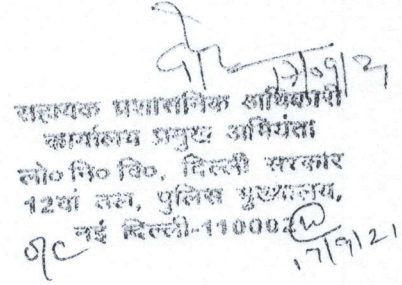 17/09/21
सहायक प्रशासनिक अधिकारी
कार्यालय प्रमुख अभियंता
लो० नि० वि०, दिल्ली सरकार
12वां तल, पुलिस मुख्यालय,
नई दिल्ली-110002
17/9/21